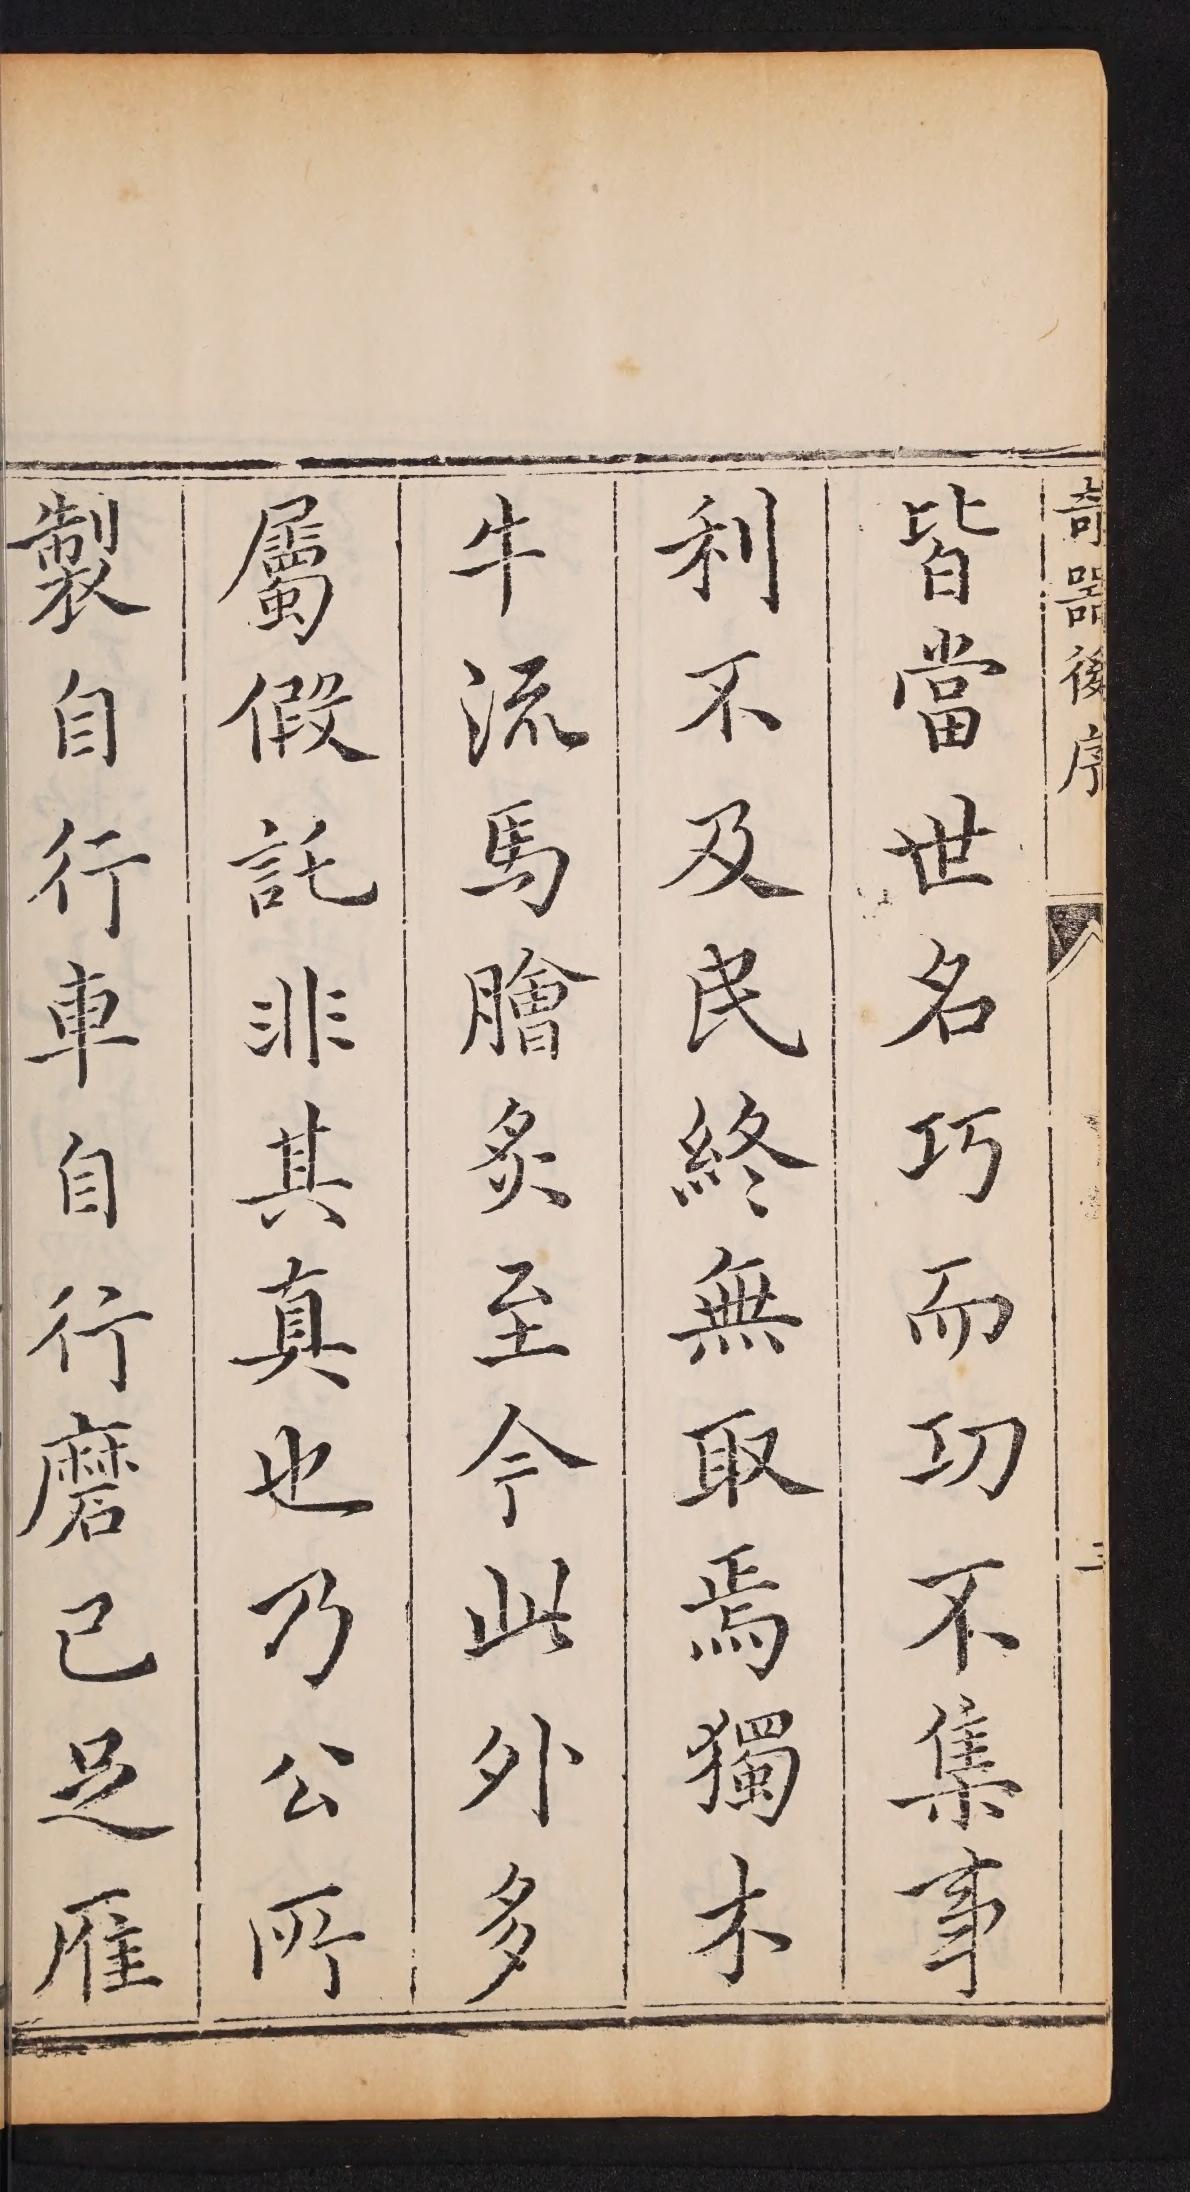 奇器後序
皆當世名巧而功不集事
利不及民終無取焉獨木
牛流馬膾炙至今此外多
屬假託非其真也乃公所
製自行車自行磨已足雁